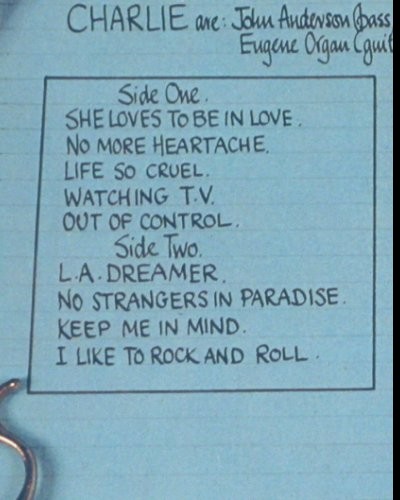 CHARLIE are: John Anderson (bass
Eugene Organ (guit
Side One.
SHE LOVES TO BE IN LOVE.
NO MORE HEARTACHE.
LIFE SO CRUEL.
WATCHING T.V.
OUT OF CONTROL.
Side Two.
L.A. DREAMER.
NO STRANGERS IN PARADISE.
KEEP ME IN MIND.
I LIKE TO ROCK AND ROLL.